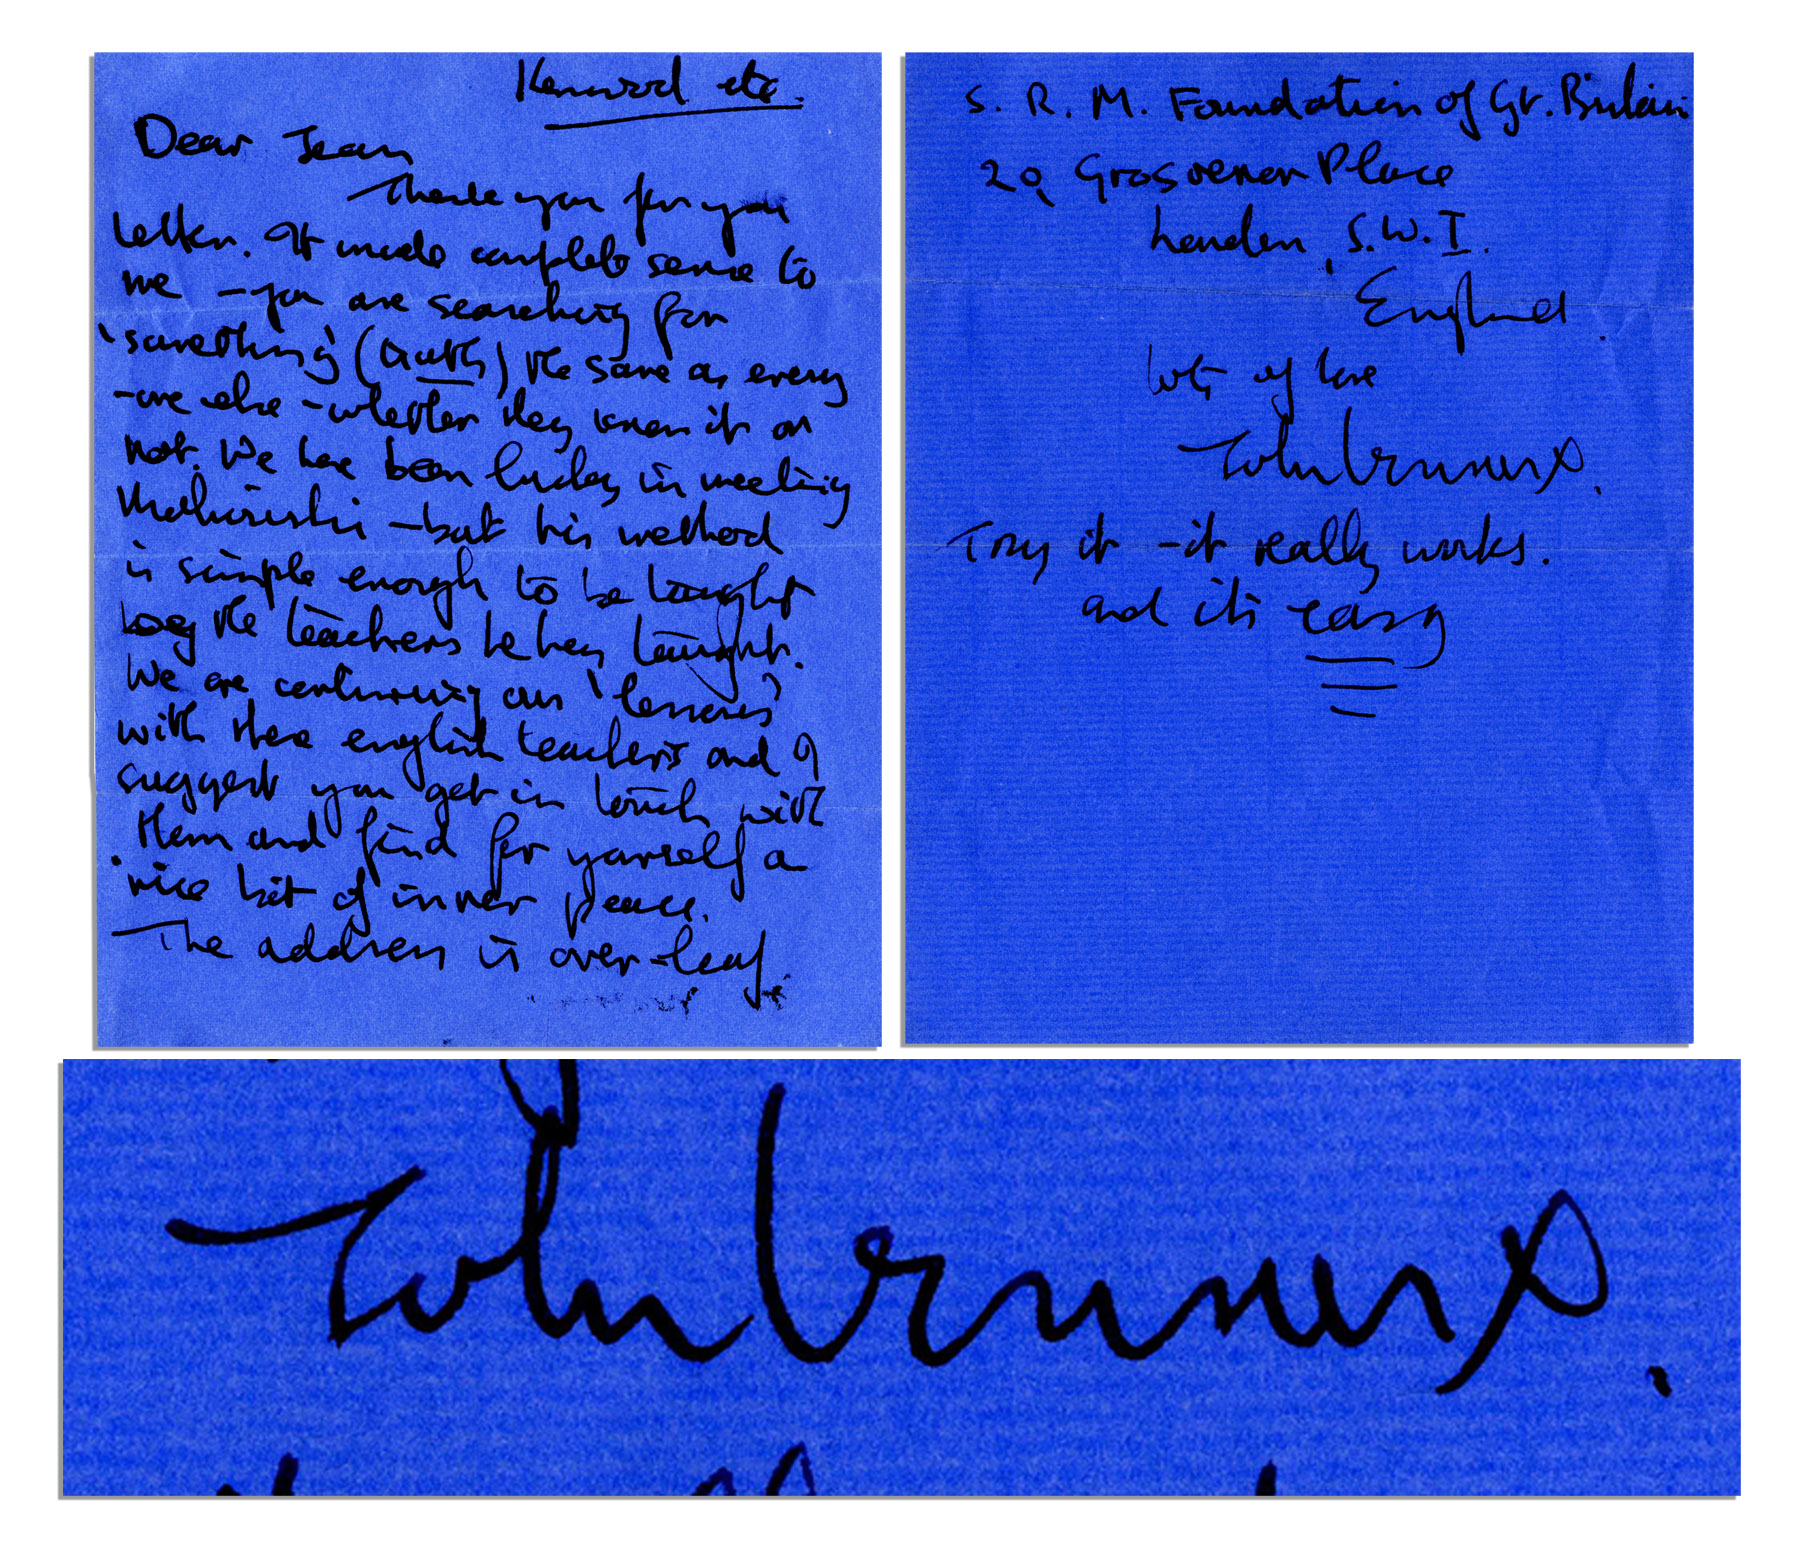 Kenwood etc.
Dear Jean
Thank you for your
letter. It made complete sense to
me – you are searching for
'something' (truth) the same as every
-one else – whether they know it or
not. We have been lucky in meeting
Maharishi – but his method
is simple enough to be taught
by the teachers he has taught.
We are continuing our 'lessons'
with these english teachers and I
suggest you get in touch with
them and find for yourself a
nice bit of inner peace.
The address is over-leaf.
S. R. M. Foundation of Gt. Britain
20 Grosvenor Place
London, S.W.1.
England.
lots of love
John Lennon x.
Try it – it really works.
and its easy
John Lennon x.